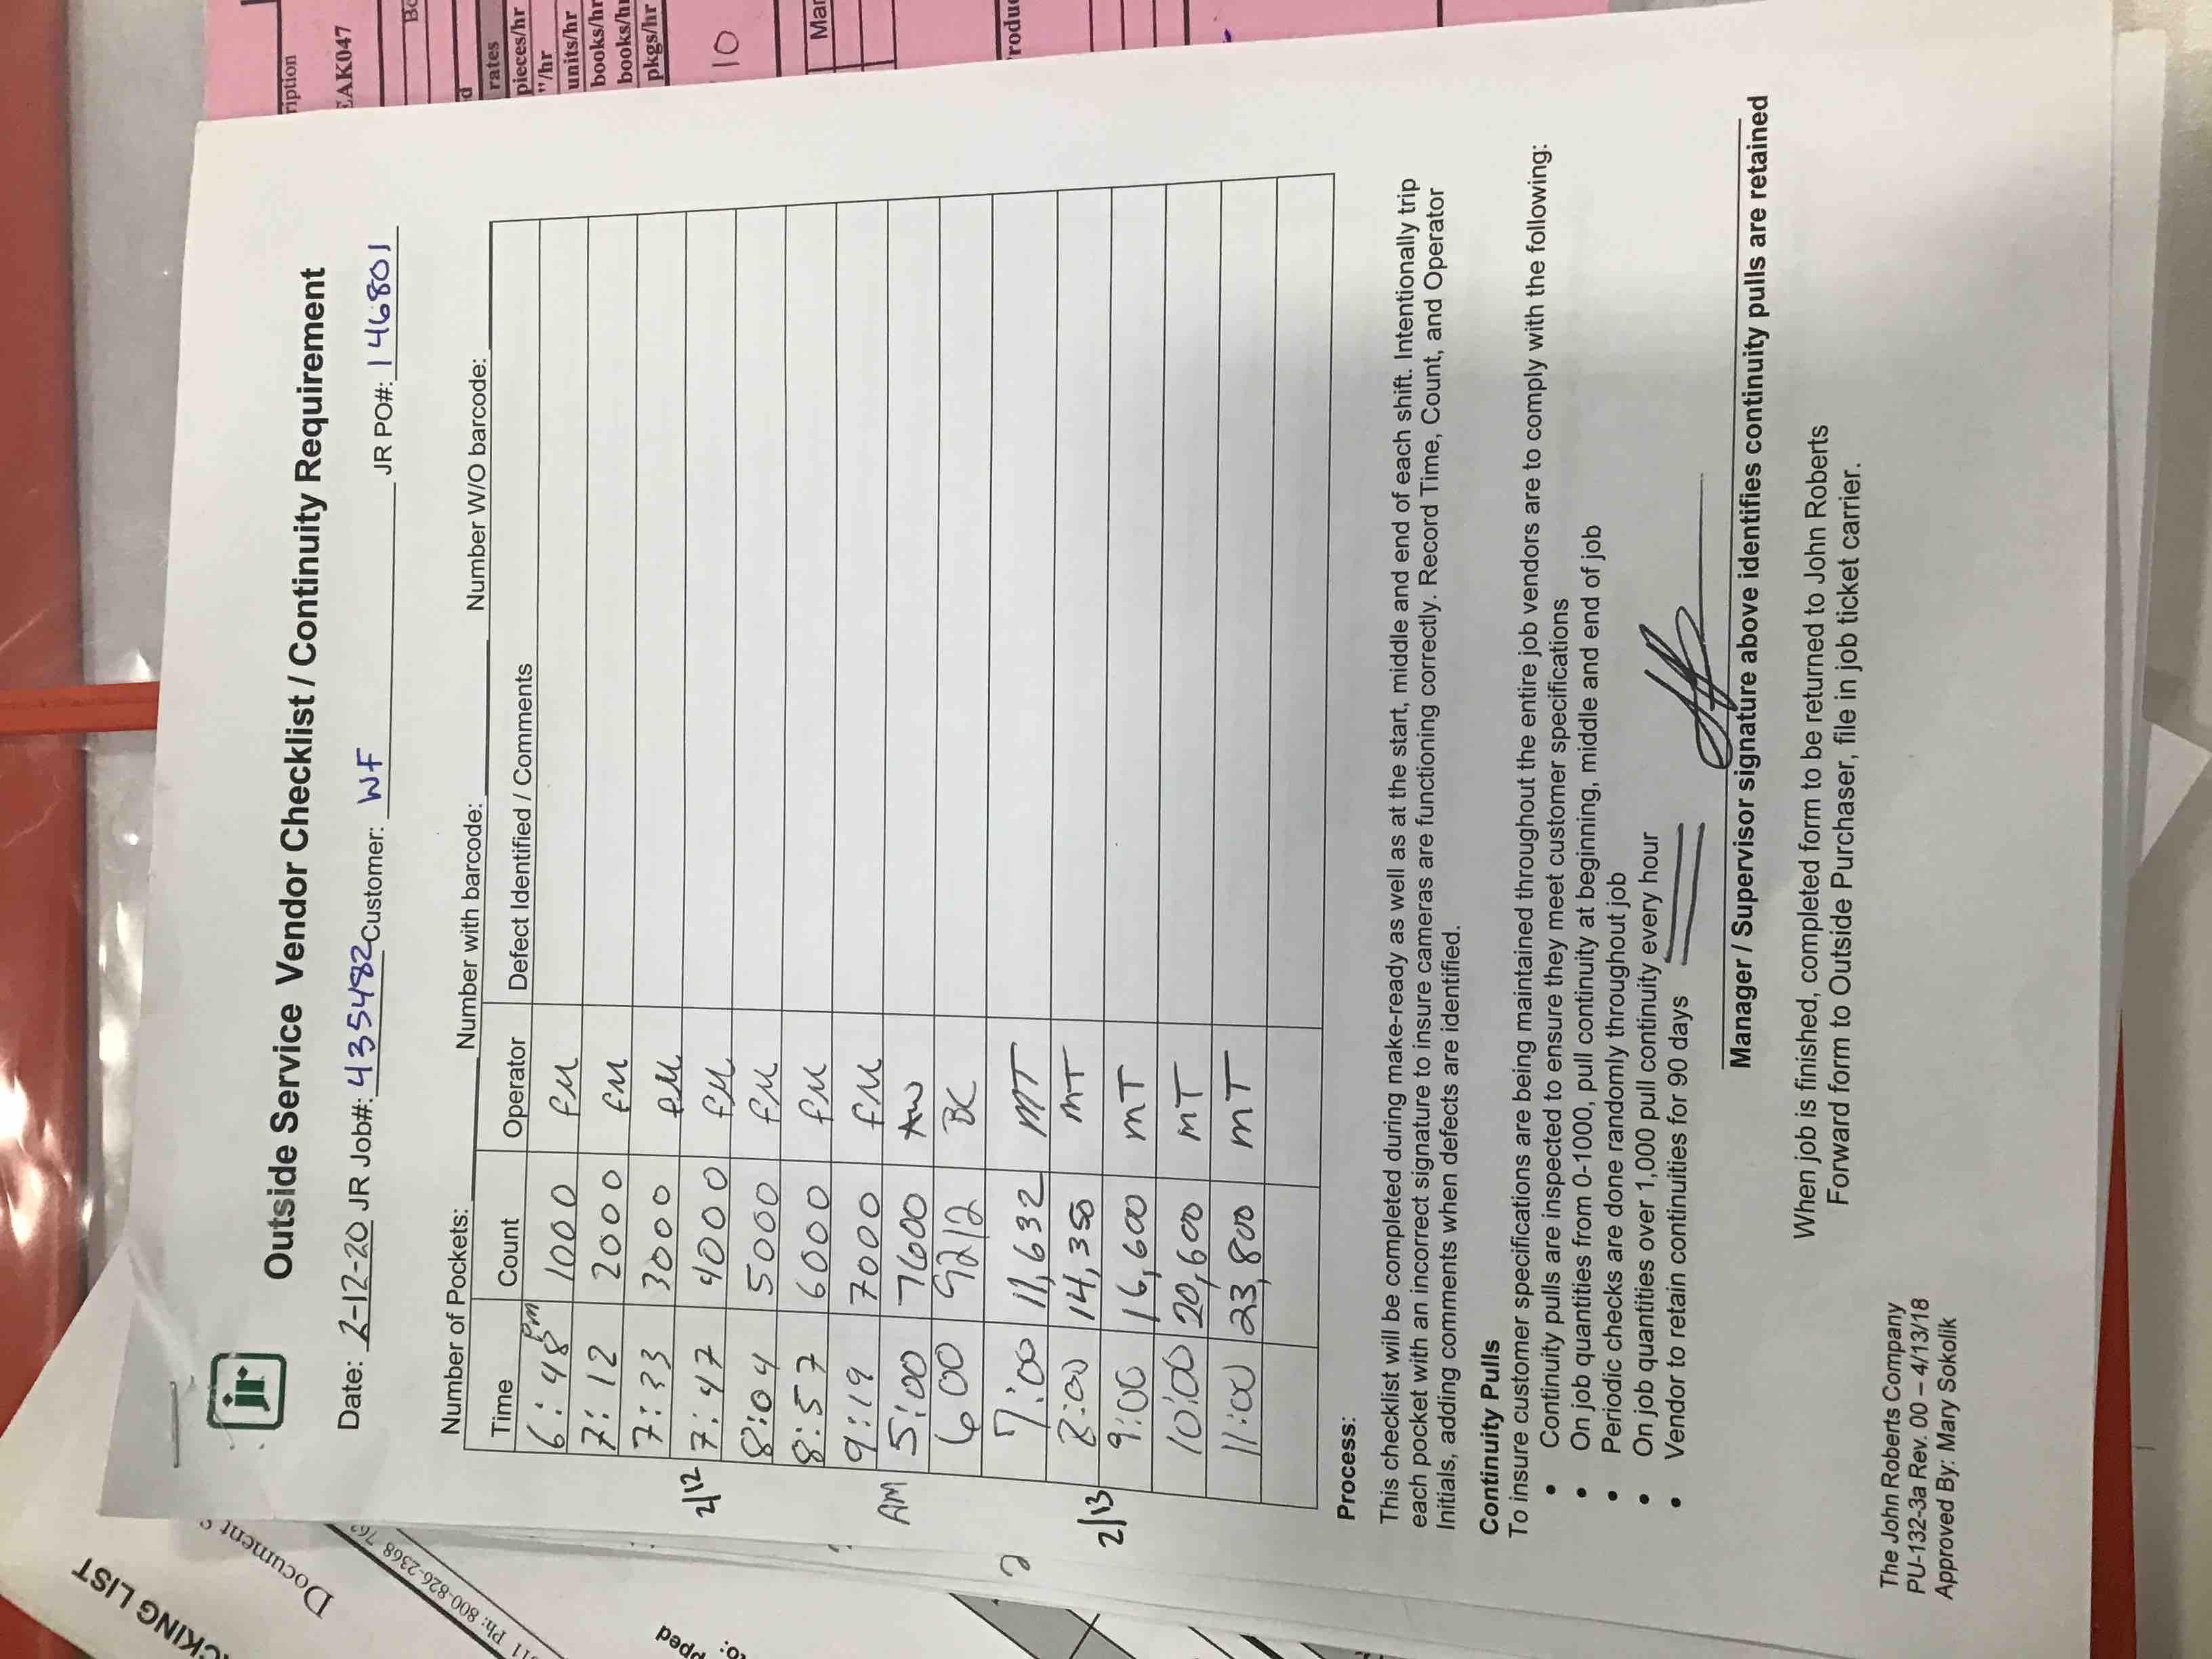 jr
Outside Service Vendor Checklist / Continuity Requirement
Date: 2-12-20 JR Job#: 4355482 Customer: WF JR PO#: 146801
Number of Pockets: Number with barcode: Number W/O barcode:
Time Count Operator Defect Identified / Comments
6:48 pm 1000 fM
7:12 2000 fM
7:33 3000 fM
2/12 7:47 4000 fM
8:04 5000 fM
8:57 6000 fM
9:19 7000 fM
AM 5:00 7600 AW
6:00 9212 BC
7:00 11,632 MT
8:00 14,350 MT
2/13 9:00 16,600 MT
10:00 20,600 MT
11:00 23,800 MT
Process:
This checklist will be completed during make-ready as well as at the start, middle and end of each shift. Intentionally trip
each pocket with an incorrect signature to insure cameras are functioning correctly. Record Time, Count, and Operator
Initials, adding comments when defects are identified.
Continuity Pulls
To insure customer specifications are being maintained throughout the entire job vendors are to comply with the following:
• Continuity pulls are inspected to ensure they meet customer specifications
• On job quantities from 0-1000, pull continuity at beginning, middle and end of job
• Periodic checks are done randomly throughout job
• On job quantities over 1,000 pull continuity every hour
• Vendor to retain continuities for 90 days
Manager / Supervisor signature above identifies continuity pulls are retained
When job is finished, completed form to be returned to John Roberts
Forward form to Outside Purchaser, file in job ticket carrier.
The John Roberts Company
PU-132-3a Rev. 00 – 4/13/18
Approved By: Mary Sokolik
EAK047
rates
pieces/hr
"/hr
units/hr
books/hr
books/hr
pkgs/hr
10
CKING LIST
Document
Ph: 800-826-2368